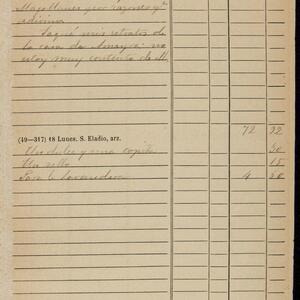 Magallanes por razones q
Saqué mis retratos de
la casa de Amayra no
estoy muy contento de M.
72 32
(49—317) 18 Lunes. S. Eladio, arz.
Un dulce y una copita 30
Un sello 15
Para la lavandera 4 20